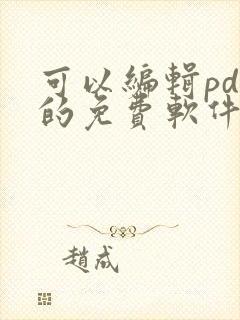 可以編輯pd
的免費軟件
趙成